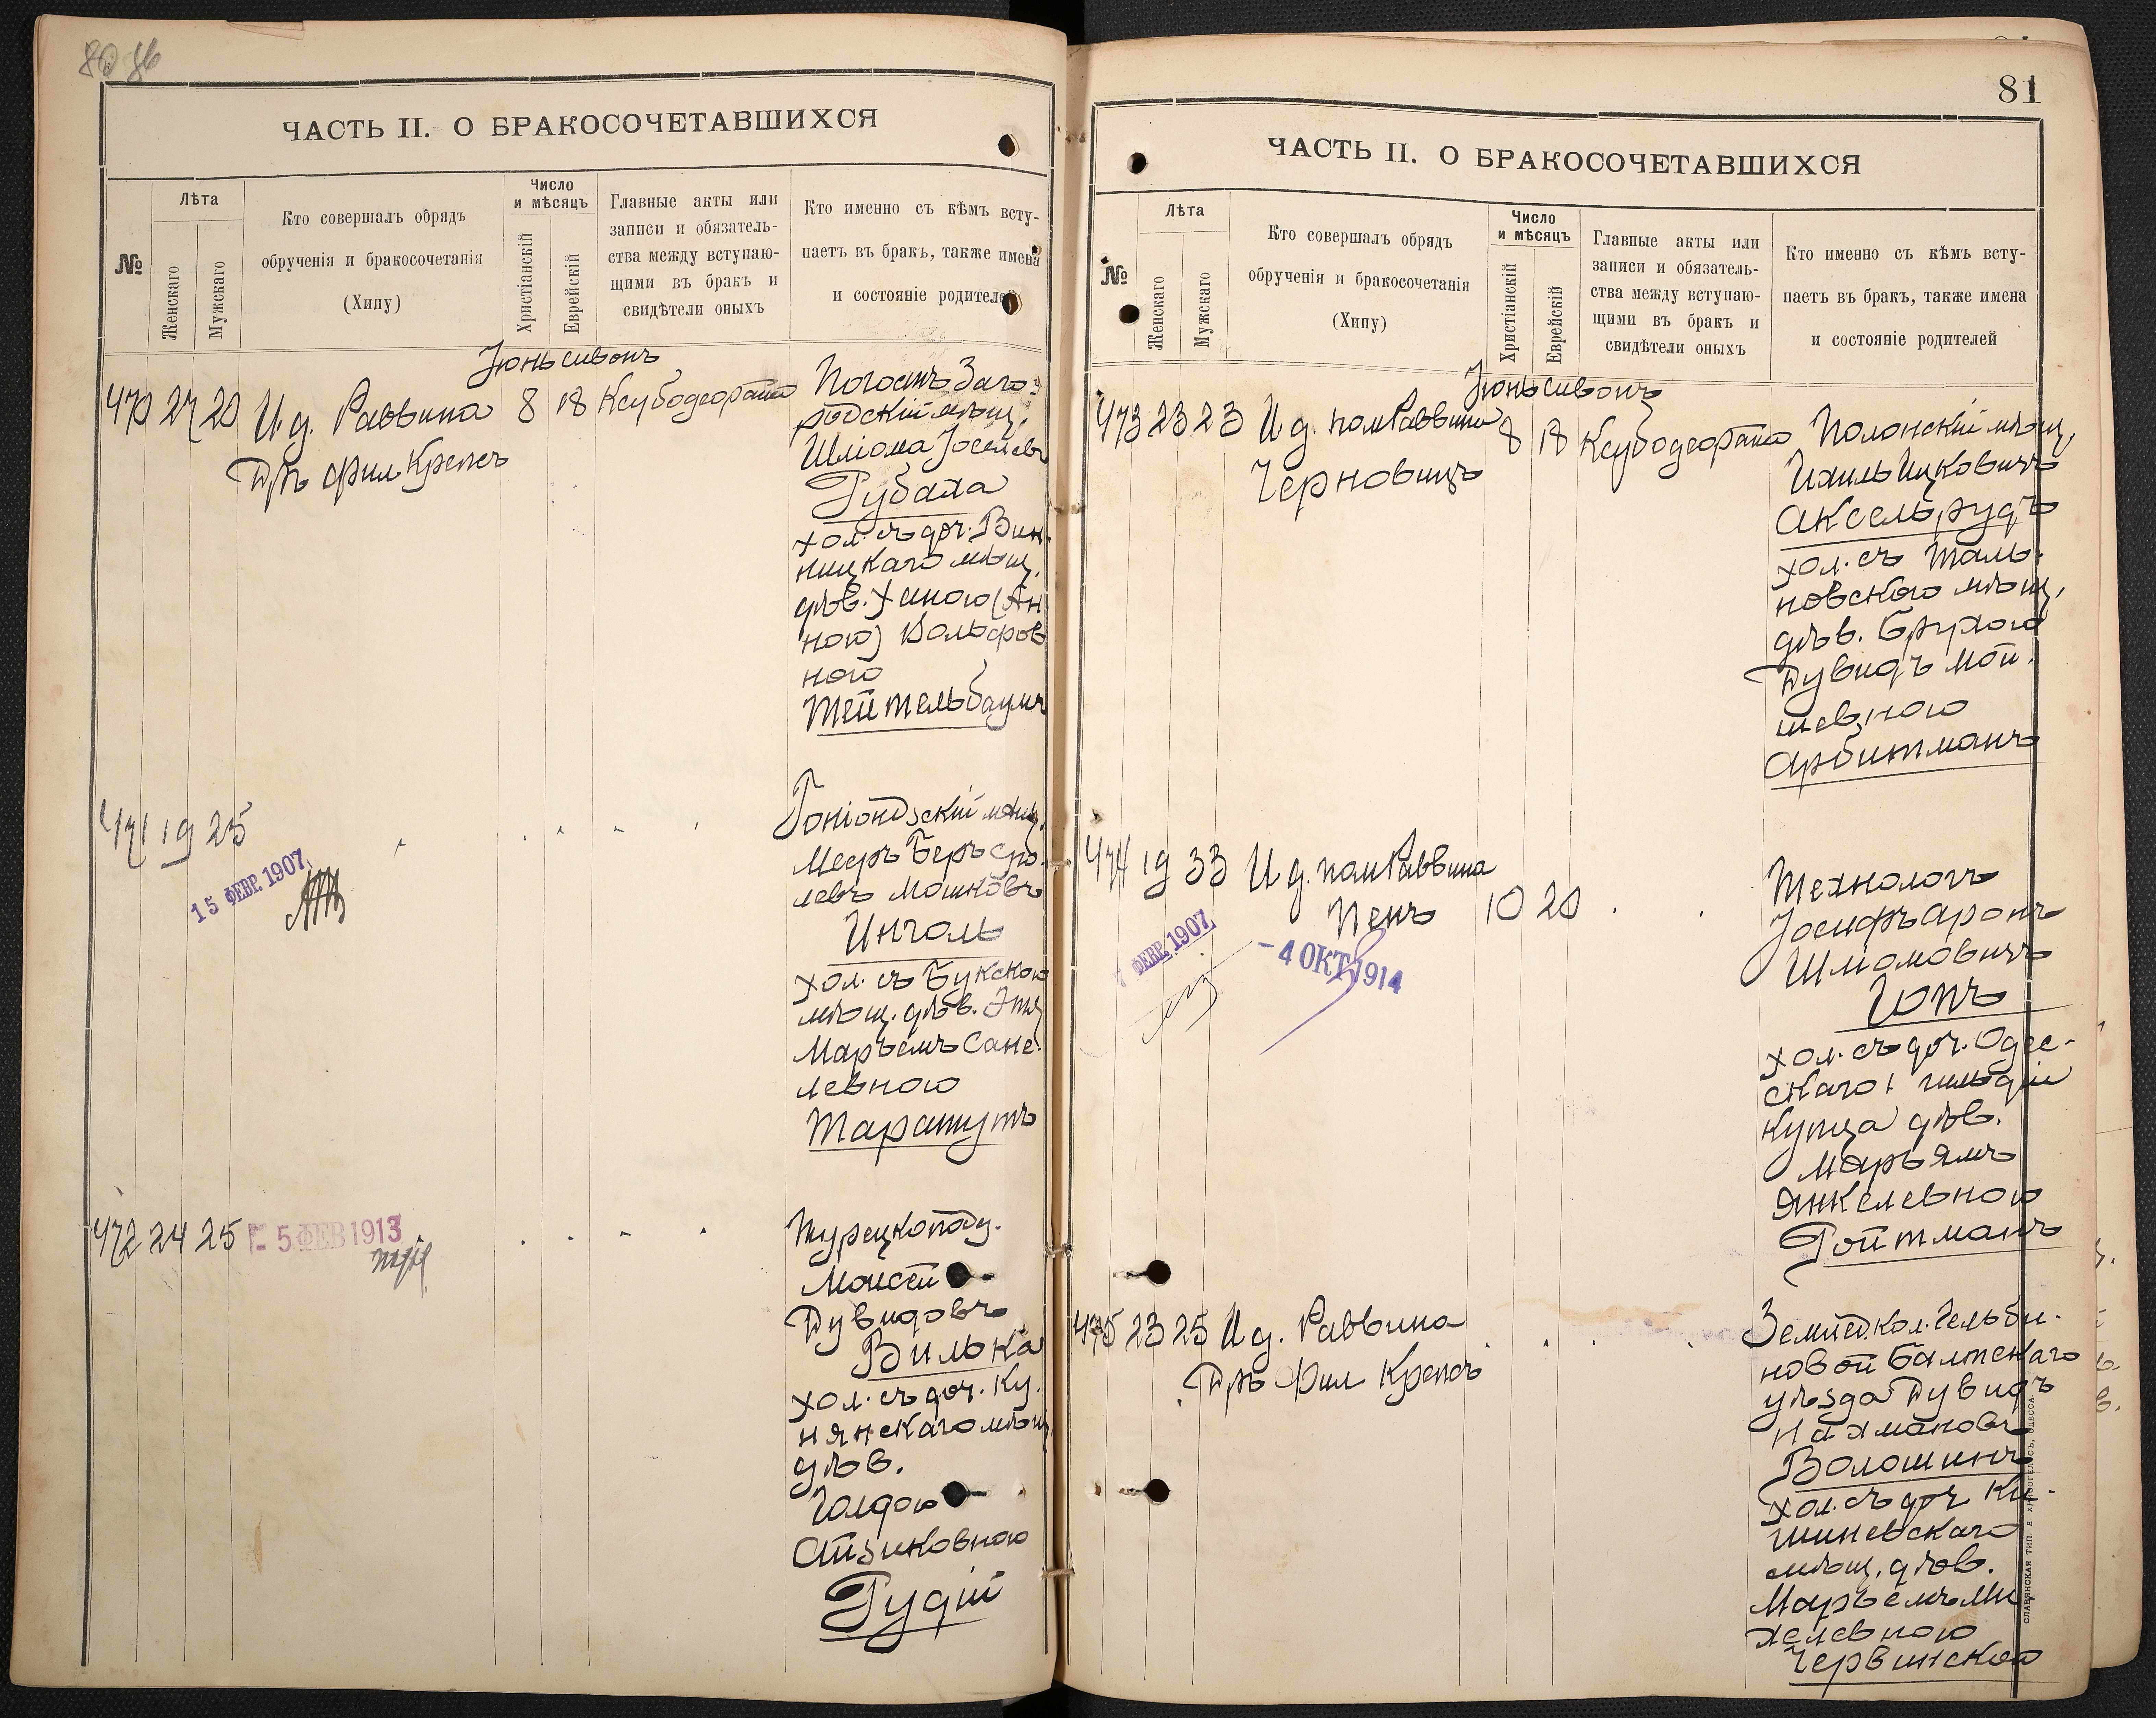 80 86
ЧАСТЬ II. О БРАКОСОЧЕТАВШИХСЯ
№
Лѣта
Женскаго
Мужскаго
Кто совершалъ обрядъ
обрученія и бракосочетанія
(Хипу)
Число
и мѣсяцъ
Христіанскій
Еврейскій
Главные акты или
записи и обязатель-
ства между вступаю-
щими въ бракъ и
свидѣтели оныхъ
Кто именно съ кѣмъ всту-
паетъ въ бракъ, также имена
и состояніе родителей
Іюнь сивонъ
470 27 20 И. д. Раввина 8 18 Ксубодеората
Дръ фил Крепсъ
Погостъ Заго-
родскій мѣщ.
Шліома Іоселевъ
Рубаха
хол. съ доч. Вин-
ницкаго мѣщ.
дѣв. Ханою (Ан
ною) Вольфов
ною
Тейтельбаумъ
471 19 25
15 ФЕВР. 1907
Гоніондзскій мѣщ.
Меер Беръ Сро-
левъ Мошковъ
Инголь
хол. съ Букскою
мѣщ. дѣв. Эты
Марьемъ Сане-
левною
Таращутъ
472 24 25
5 ФЕВ 1913
Турецкопод.
Моисей
Дувидовъ
Вилька
хол. съ доч. Ку-
нянскаго мѣщ
дѣв.
Голдою
Айзиковною
Рудій
81
ЧАСТЬ II. О БРАКОСОЧЕТАВШИХСЯ
№
Лѣта
Женскаго
Мужскаго
Кто совершалъ обрядъ
обрученія и бракосочетанія
(Хипу)
Число
и мѣсяцъ
Христіанскій
Еврейскій
Главные акты или
записи и обязатель-
ства между вступаю-
щими въ бракъ и
свидѣтели оныхъ
Кто именно съ кѣмъ всту-
паетъ въ бракъ, также имена
и состояніе родителей
Іюнь сивонъ
473 23 23 И д. пом Раввина 8 18 Ксубодеората
Черновицъ
Полонскій мѣщ,
Ихиль Ицковичъ
Аксельрудъ
хол. съ Таль-
новскаго мѣщ,
дѣв. Брухою
Дувидъ Мой-
шевною
Арбитманъ
474 19 33 И д. пом Раввина
Пенъ 10 20
7 ФЕВР. 1907
- 4 ОКТ 1914
Технологъ
Іосифъ Аронъ
Шліомовичъ
Гопъ
хол. съ доч. Одес-
скаго 1 гильдіи
купца дѣв.
Марьямъ
Янкелевною
Ройтманъ
475 23 25 И д. Раввина
Дръ Фил Крепсъ
Землед. кол. Гельби-
новой Балтскаго
уѣзда Дувидъ
Нахмановъ
Волошинъ
хол. съ доч Ки-
шиневскаго
мѣщ, дѣв.
Марьемъ Ми
хелевною
Червинской
СЛАВЯНСКАЯ ТИП. Е ХРИСОГЕЛОСЪ, ОДЕССА.